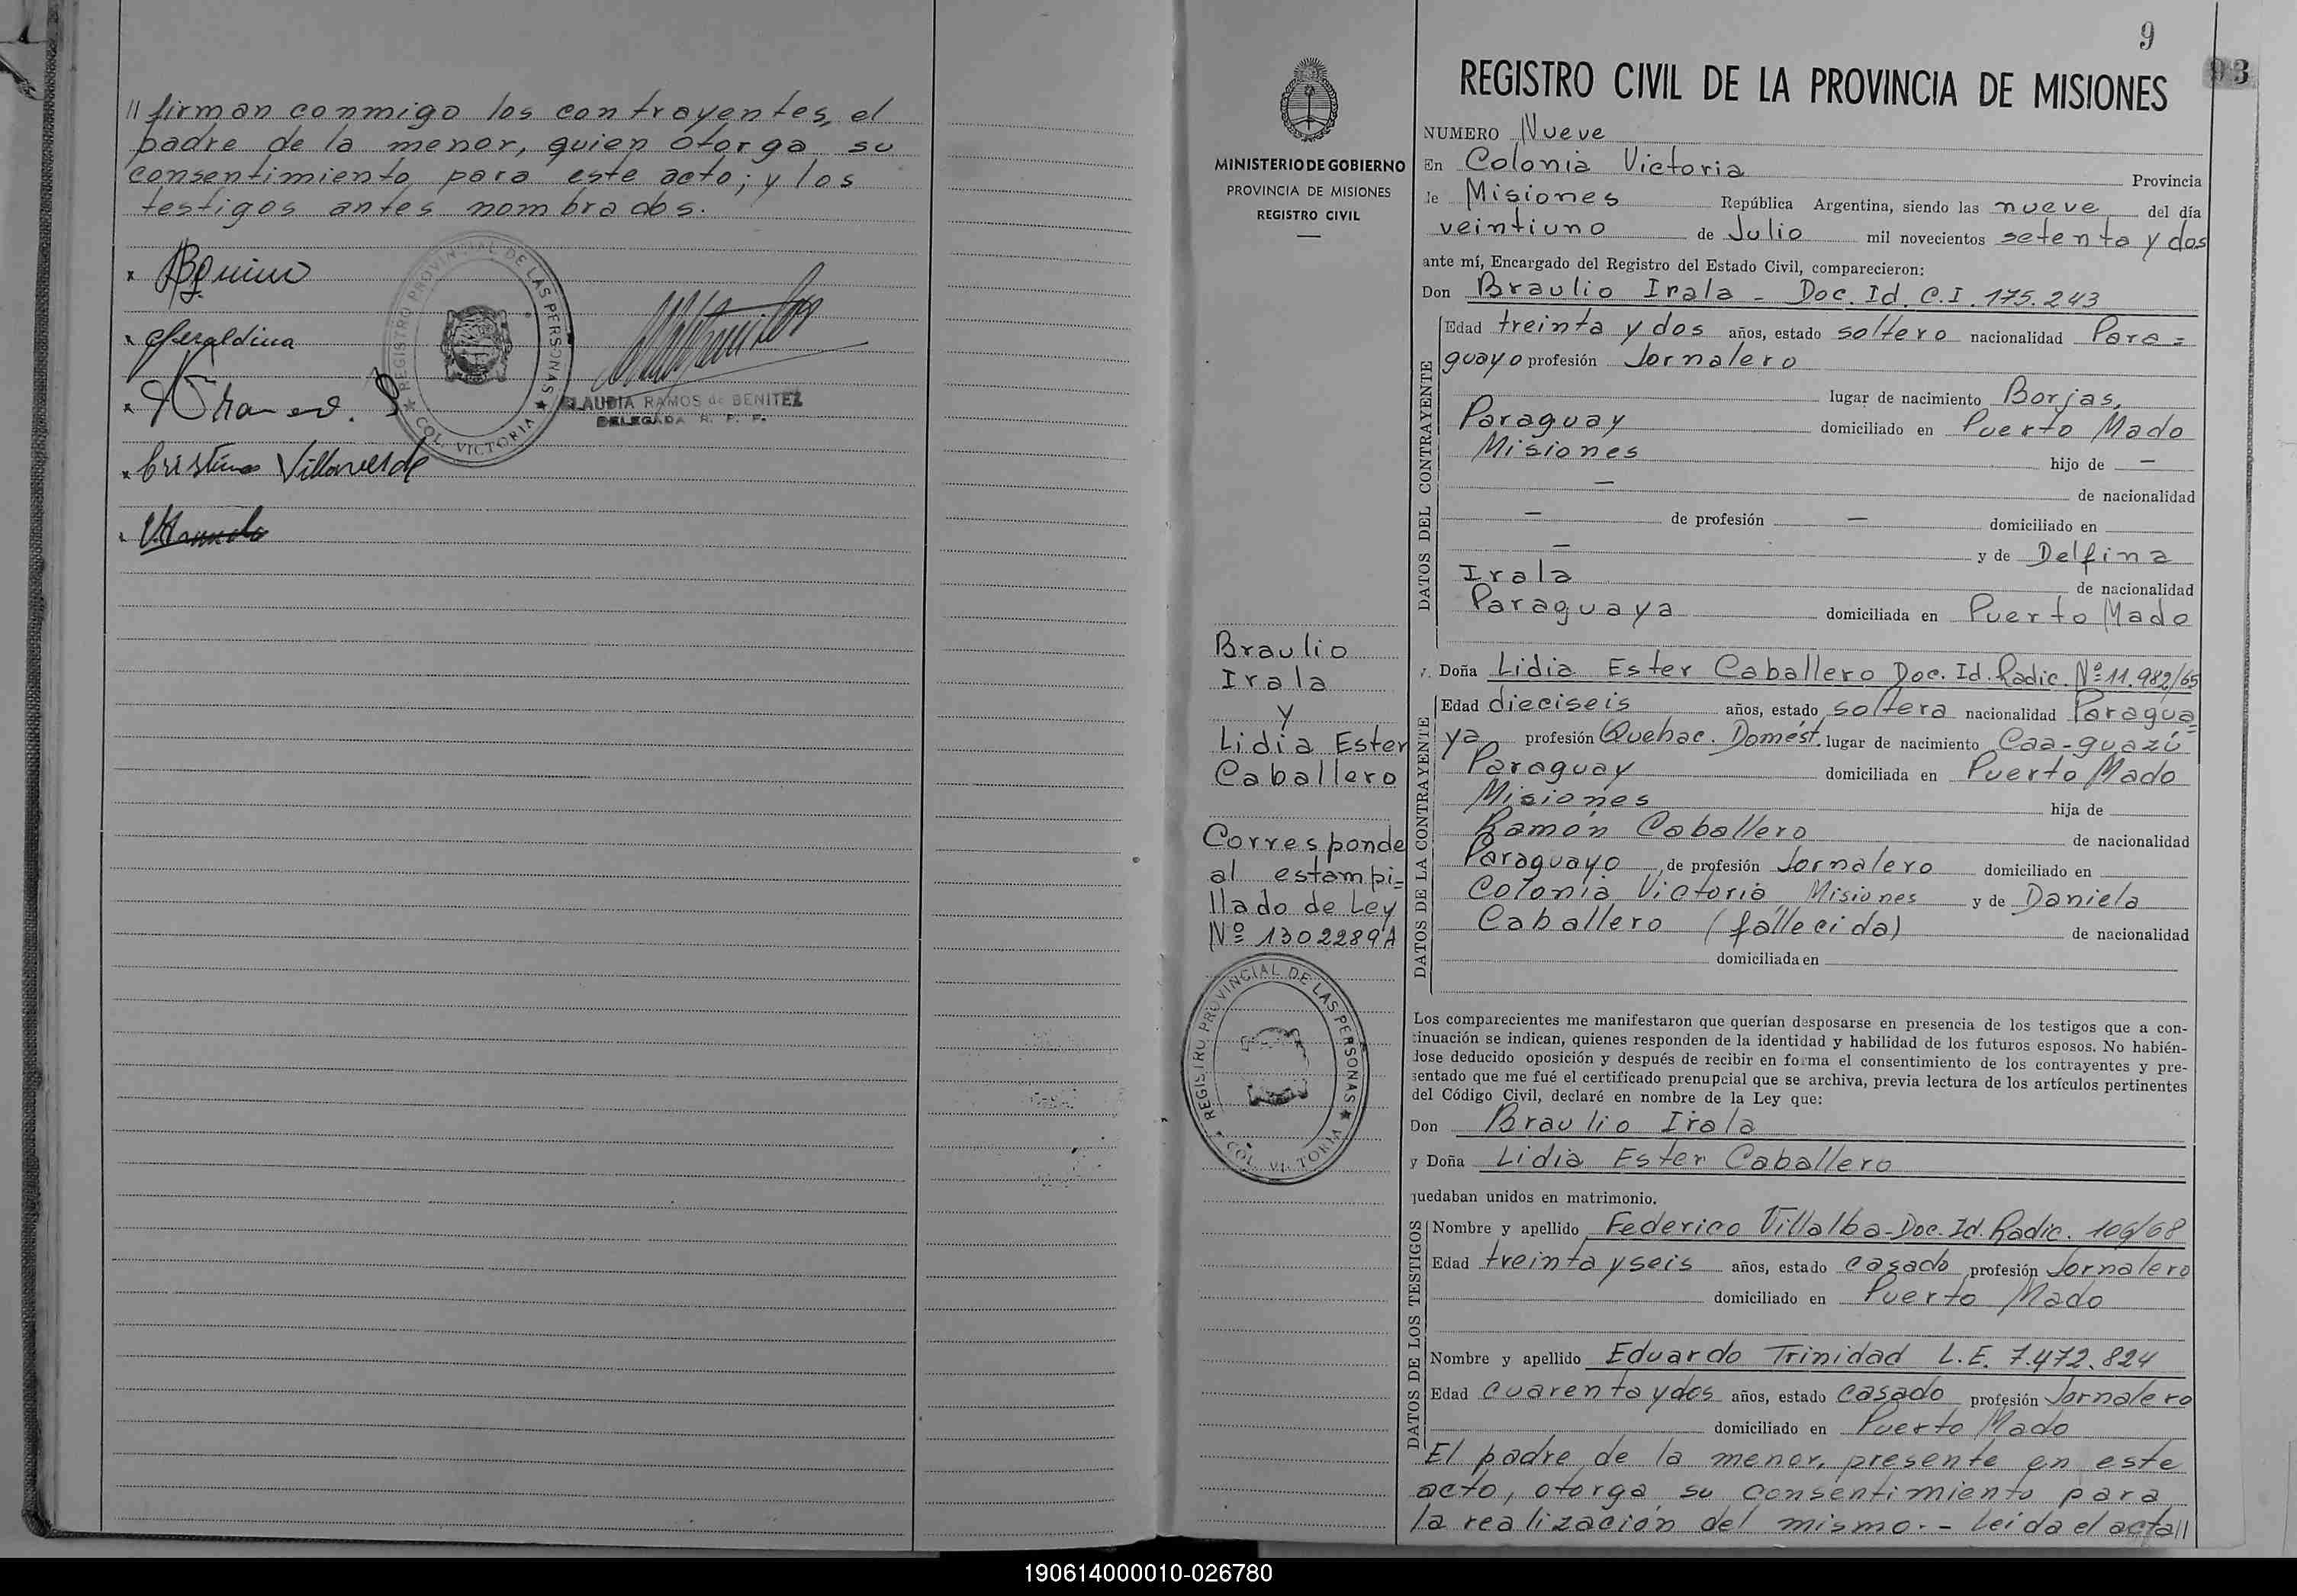 // firman conmigo los contrayentes, el
padre de la menor, quien otorga su
consentimiento para este acto; y los
testigos antes nombrados.
REGISTRO PROVINCIAL DE LAS PERSONAS
COL. VICTORIA
Geraldina
CLAUDIA RAMOS de BENITEZ
DELEGADA R. P. P.
Cristina Villaverde
9
93
REGISTRO CIVIL DE LA PROVINCIA DE MISIONES
MINISTERIO DE GOBIERNO
PROVINCIA DE MISIONES
REGISTRO CIVIL
NUMERO Nueve
En Colonia Victoria Provincia
de Misiones República Argentina, siendo las nueve del día
veintiuno de Julio mil novecientos setenta y dos
ante mí, Encargado del Registro del Estado Civil, comparecieron:
Don Braulio Irala - Doc. Id. C.I. 175.243
DATOS DEL CONTRAYENTE
Edad treinta y dos años, estado soltero nacionalidad Para=
guayo profesión Jornalero
lugar de nacimiento Borjas,
Paraguay domiciliado en Puerto Mado
Misiones hijo de —
— de nacionalidad
— de profesión — domiciliado en
— y de Delfina
Irala de nacionalidad
Paraguaya domiciliada en Puerto Mado
Braulio
Irala
y
Lidia Ester
Caballero
Corresponde
al estampi=
llado de Ley
Nº 1302289A
REGISTRO PROVINCIAL DE LAS PERSONAS
COL. VICTORIA
y Doña Lidia Ester Caballero Doc. Id. Radic. Nº 11.982/65
DATOS DE LA CONTRAYENTE
Edad dieciseis años, estado soltera nacionalidad Paragua=
ya profesión Quehac. Domést. lugar de nacimiento Caa-guazú
Paraguay domiciliada en Puerto Mado
Misiones hija de
Ramón Caballero de nacionalidad
Paraguayo de profesión Jornalero domiciliado en
Colonia Victoria, Misiones y de Daniela
Caballero (fallecida) de nacionalidad
domiciliada en
Los comparecientes me manifestaron que querían desposarse en presencia de los testigos que a con-
tinuación se indican, quienes responden de la identidad y habilidad de los futuros esposos. No habién-
dose deducido oposición y después de recibir en forma el consentimiento de los contrayentes y pre-
sentado que me fué el certificado prenupcial que se archiva, previa lectura de los artículos pertinentes
del Código Civil, declaré en nombre de la Ley que:
Don Braulio Irala
y Doña Lidia Ester Caballero
quedaban unidos en matrimonio.
DATOS DE LOS TESTIGOS
Nombre y apellido Federico Villalba - Doc. Id. Radic. 106/68
Edad treinta y seis años, estado casado profesión Jornalero
domiciliado en Puerto Mado
Nombre y apellido Eduardo Trinidad L.E. 7.472.824
Edad cuarenta y dos años, estado casado profesión Jornalero
domiciliado en Puerto Mado
El padre de la menor, presente en este
acto, otorga su consentimiento para
la realización del mismo.- Leida el acta//
190614000010-026780